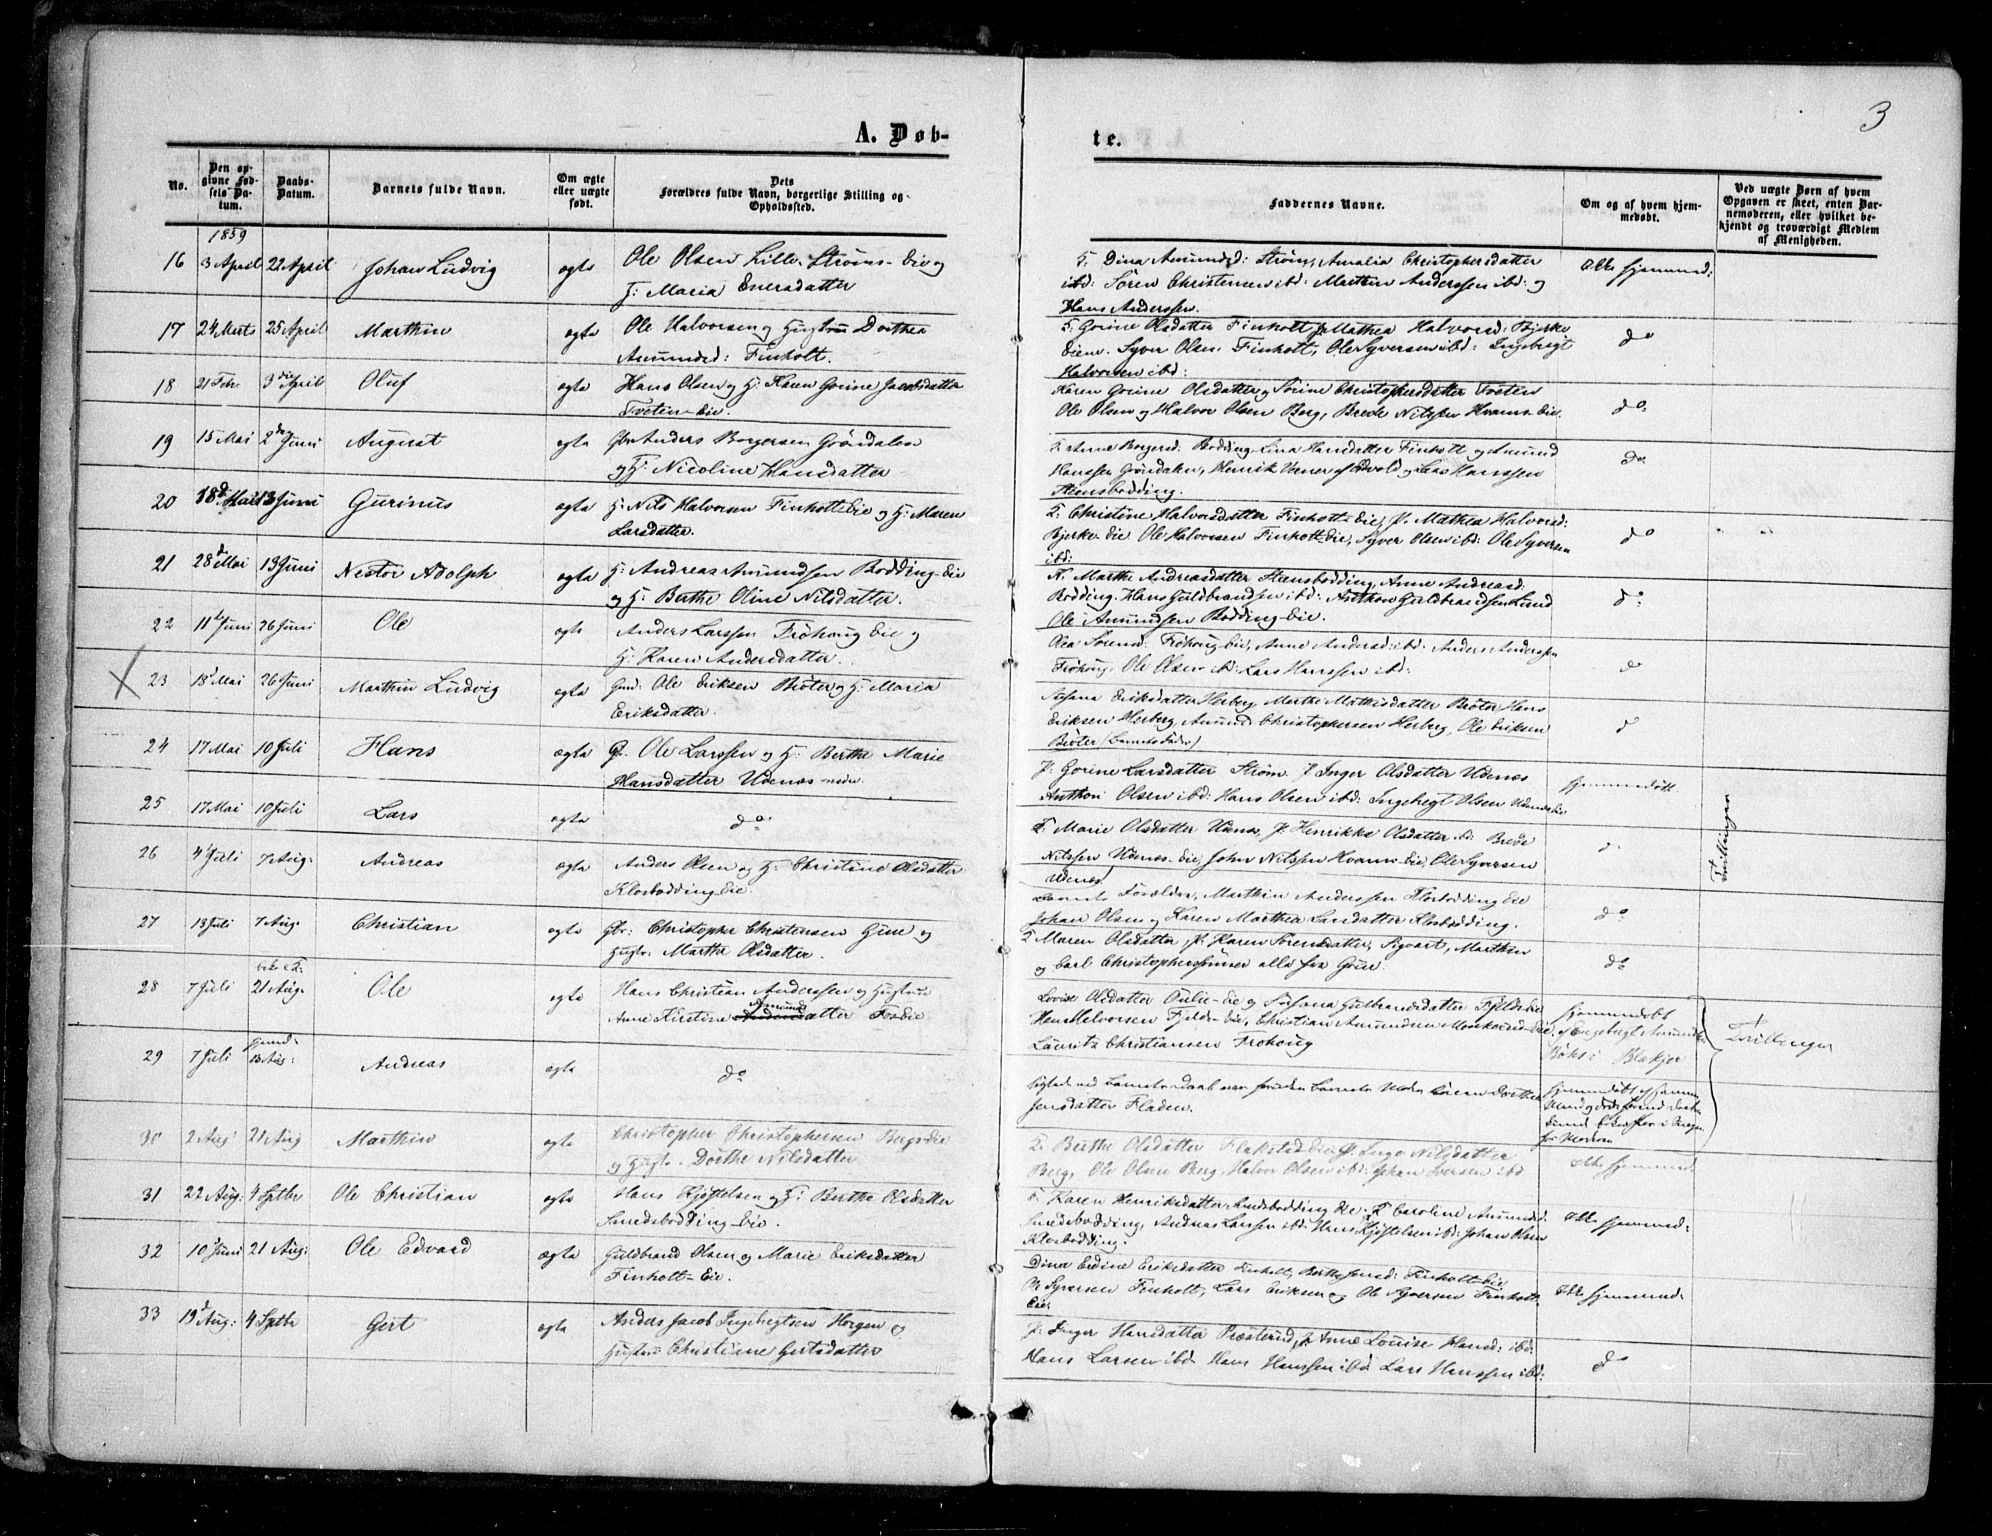 3
A. Døb-
te.
No.
Den opgivne Fødsels Datum.
Daabs-Datum.
Barnets fulde Navn.
Om ægte eller uægte født.
Dets Forældres fulde Navn, borgerlige Stilling og Opholdssted.
Faddernes Navne.
Om og af hvem hjemmedøbt.
Ved uægte Børn af hvem Opgaven er skeet, enten Barnemoderen, eller hvilket bekjendt og troværdigt Medlem af Menigheden.
1859
16 3 April 22 April Johan Ludvig ægte Ole Olsen Lille Strøms-Eie og
H: Maria Enersdatter
F. Dina Amundsd: Strøm, Amalia Christophersdatter
ibd: Søren Christensen ibd: Marthin Anderssen ibd: og
Hans Anderssen.
Ikke hjemmed:
17 24 Marts 25 April Marthin ægte Ole Halvorsen og Hustru Dorthea
Amundsd: Finholt.
F. Gorine Olsdatter Finholt, P. Mathea Halvorsd: Bjerke
Eien. Syver Olsen Finholt, Ole Syversen ibd: Ingebrigt
Halvorsen ibd:
do
18 21 Febr 3die April Oluf ægte Hans Olsen og H: Karen Gorine Jacobsdatter
Tveten-Eie.
Karen Gorine Olsdatter og Sørine Christophersdatter Tveten
Ole Olsen og Halvor Olsen Berg, Brede Nilssen Hvams-Eie.
do
19 15 Mai 2den Juni August ægte Gbr Anders Borgersen Grøndalen
og H: Nicoline Hansdatter
F. Anne Borgersd. Bodding, Lina Hansdatter Finholt og Amund
Hanssen Grøndalen, Henrik og Lars Hanssen
Steensbodding.
do
20 18d Mai 13 Juni Gurinus ægte H: Nils Halvorsen Finholt-Eie og H: Maren
Larsdatter.
F. Christine Halvorsdatter Finholt-Eie, P. Mathea Halvorsd:
Bjerke-Eie Ole Halvorsen Finholt-Eie, Syver Olsen ibd: Ole Syversen
ibd:
do
21 28d Mai 13 Juni Nestor Adolph ægte H: Andreas Amundsen Bodding-Eie
og H: Berthe Oline Nilsdatter.
K. Marthe Andreasdatter Steensbodding, Anne Andreasd:
Bodding. Hans Guldbrandsen ibd: Anthon Guldbrandsen Lund
Ole Amundsen Bodding-Eie.
do
22 11te Juni 26 Juni Ole ægte Anders Larssen Frøhoug Eie og
H: Karen Andersdatter.
Olea Sørensd: Frøhoug-Eie, Anne Andersd: ibd: Anders Anderssen
Frøhoug, Ole Olsen ibd: Lars Hanssen ibd:
do
23 18 Mai 26 Juni Marthin Ludvig ægte Ole Eriksen Brøter og H: Maria
Eriksdatter.
Eriksdatter Herberg, Marthe Mathisdatter Brøter Hans
Eriksen Herberg, Amund Christophersen Herberg, Ole Eriksen
Brøter (Barnets Fader)
do
24 17 Mai 10 Juli Hans ægte G. Ole Larssen og H: Berthe Marie
Hansdatter Udenæs nedre.
P: Gorine Larsdatter Strøm. P. Inger Olsdatter Udenæs
Anthon Olsen ibd: Hans Olsen ibd: Ingebregt Olsen Udenæs-Eie
Hjemmedøbt.
Tvillinger
25 17 Mai 10 Juli Lars ægte do
F. Marie Olsdatter Udenæs, P. Henrikke Olsdatter ibd: Brede
Nilssen Udenæs-Eie, John Nilssen Hvams-Eie, Ole Syversen
Udenæs
do
26 4 Juli 7 Aug: Andreas ægte Anders Olsen og H: Christine Olsdatter
Klosbodding-Eie.
Barnets Forældre, Marthin Anderssen Klosbodding Eie
Johan Olsen og Karen Marthea Larsdatter Klosbodding.
do
27 13 Juli 7 Aug. Christian ægte Gbr: Christopher Christensen Guue og
Hustr. Marthe Olsdatter.
F. Maren Olsdatter, P. Karen Sørensdatter, Sigvart, Marthin
og Carl Christopherssønner alle fra Guue.
do
28 7 Juli 21 Aug. Ole ægte Hans Christian Anderssen og Hustrue
Anne Kirstine Amundsdatter Fos-Eie
Lovise Olsdatter Oulie-Eie og Susana Guldbrandsdatter Fjelds-Eie
Hans Halvorsen Fjelds-Eie, Christian Amundsen
Lauritz Christiansen Frohoug
Hjemmedøbt
af Engebregt Amundsen
i Blakjer
Tvillinger
29 7 Juli 13 Aug: Andreas ægte do
ved Barnets daab var foruden Barnets Moder Dorthe
Jensdatter Fladen.
Hjemmedøbt
30 2 Aug 21 Aug Marthin ægte Christopher Christophersen Bergs-Eie
og Hustr. Dorthe Nilsdatter
F. Berthe Olsdatter Flakstad-Eie, P. Inge Nilsdatter
Berg, Ole Olsen Berg, Halvor Olsen ibd: Johan Iversen ibd
Ikke hjemmed.
31 22 Aug: 4 Septbr Ole Christian ægte Hans Kjøstelsen og H: Berthe Olsdatter
Smedsbodding-Eie.
F. Karen Henriksdatter Smedsbodding Eie. F. Caroline Amundsd.
Smedsbodding, Andreas Larssen ibd: Hans Kjøstelsen ibd: Johan Olsen
Klosbodding.
Ikke hjemmed:
32 10 Juni 21 Aug: Ole Edvard ægte Guldbrand Olsen og Marie Eriksdatter
Finholt-Eie.
Dina Edine Eriksdatter Finholt, Berthe Jensd: Finholt-Eie
Ole Syversen Finholt, Lars Eriksen og Ole Syversen Finholt-
Eie.
Ikke hjemmed:
33 19d Aug: 4 Septbr Gert ægte Anders Jacob Ingebregtsen Horgen og
Hustru Christiane Gertsdatter
P: Inger Hansdatter Præsterud, P. Anne Louise Hansd: ibd:
Hans Larsen ibd. Hans Hanssen ibd: Lars Hanssen ibd:
do